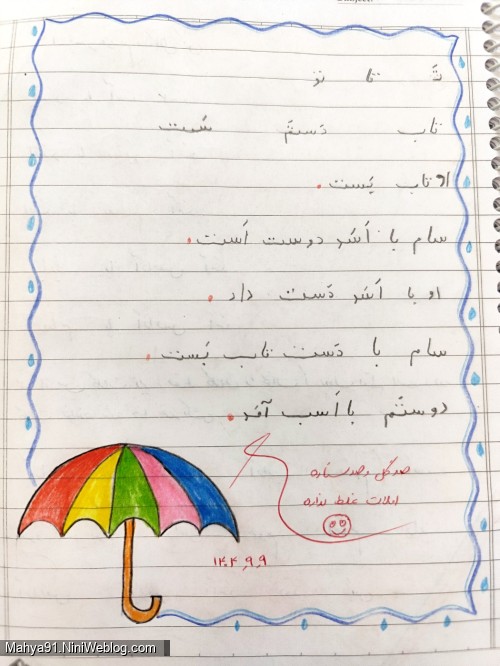 تَ تا تو
تاب دَستَم
او تاب بَست.
سام با اَسَد دوست اَست.
او با اَسَد دَست داد.
سام با دَست تاب بَست.
دوستَم با اَسب آمَد.
صد گل و صد ستاره
املات غلط نداره
۱۴۰۴,۹,۹
Mahya91.NiniWeblog.com